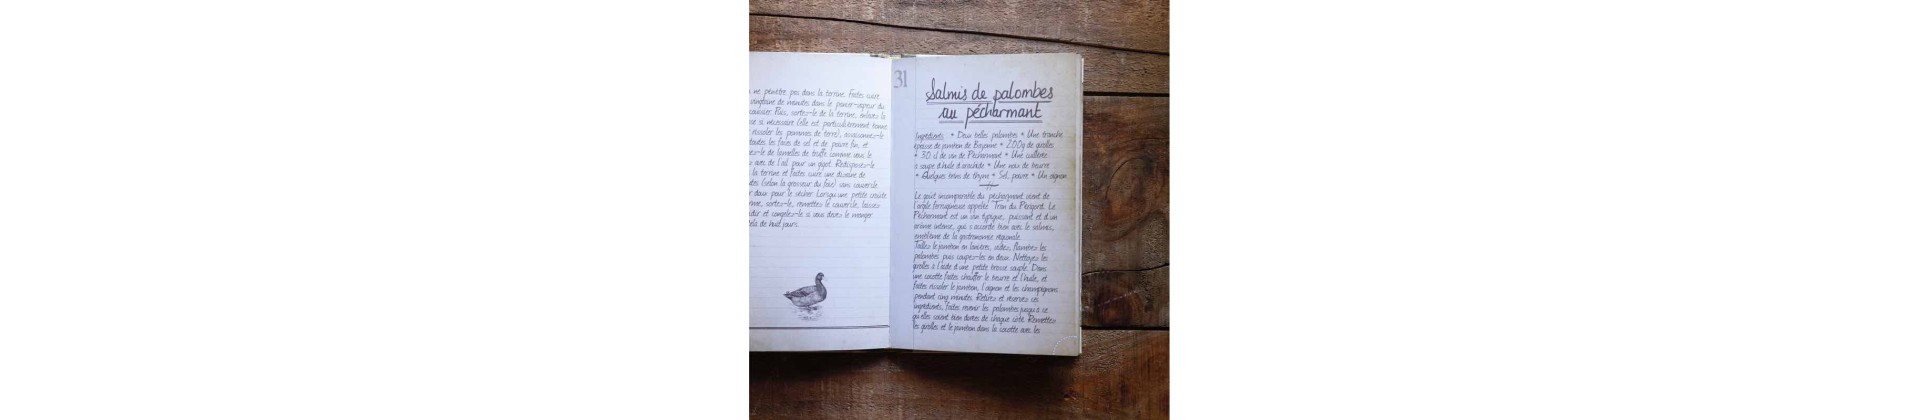 ne pénètre pas dans la terrine. Faites cuire
vingtaine de minutes dans le panier-vapeur du
Puis, sortez-le de la terrine, enlevez la
si nécessaire (elle est particulièrement bonne
rissoler les pommes de terre), assaisonnez-le
toutes les faces de sel et de poivre fin, et
de lamelles de truffe comme vous le
avec de l'ail pour un gigot. Redisposez-le
la terrine et faites cuire une dizaine de
(selon la grosseur du foie) sans couvercle
doux pour le sécher. Lorsqu'une petite croûte
sortez-le, remettez le couvercle, laissez
et congelez-le si vous devez le manger
delà de huit jours.
31
Salmis de palombes
au pécharmant
Ingrédients • Deux belles palombes • Une tranche
épaisse de jambon de Bayonne • 200g de girolles
• 30 cl de vin de Pécharmant • Une cuillère
à soupe d'huile d'arachide • Une noix de beurre
• Quelques brins de thym • Sel, poivre • Un oignon
Le goût incomparable du pécharmant vient de
l'argile ferrugineuse appelée Tran du Périgord. Le
Pécharmant est un vin typique, puissant et d'un
arôme intense, qui s'accorde bien avec le salmis,
emblème de la gastronomie régionale.
Taillez le jambon en lanières, videz, flambez les
palombes puis coupez-les en deux. Nettoyez les
girolles à l'aide d'une petite brosse souple. Dans
une cocotte faites chauffer le beurre et l'huile, et
faites rissoler le jambon, l'oignon et les champignons
pendant cinq minutes. Retirez et réservez ces
ingrédients, faites revenir les palombes jusqu'à ce
qu'elles soient bien dorées de chaque côté. Remettez
les girolles et le jambon dans la cocotte avec les